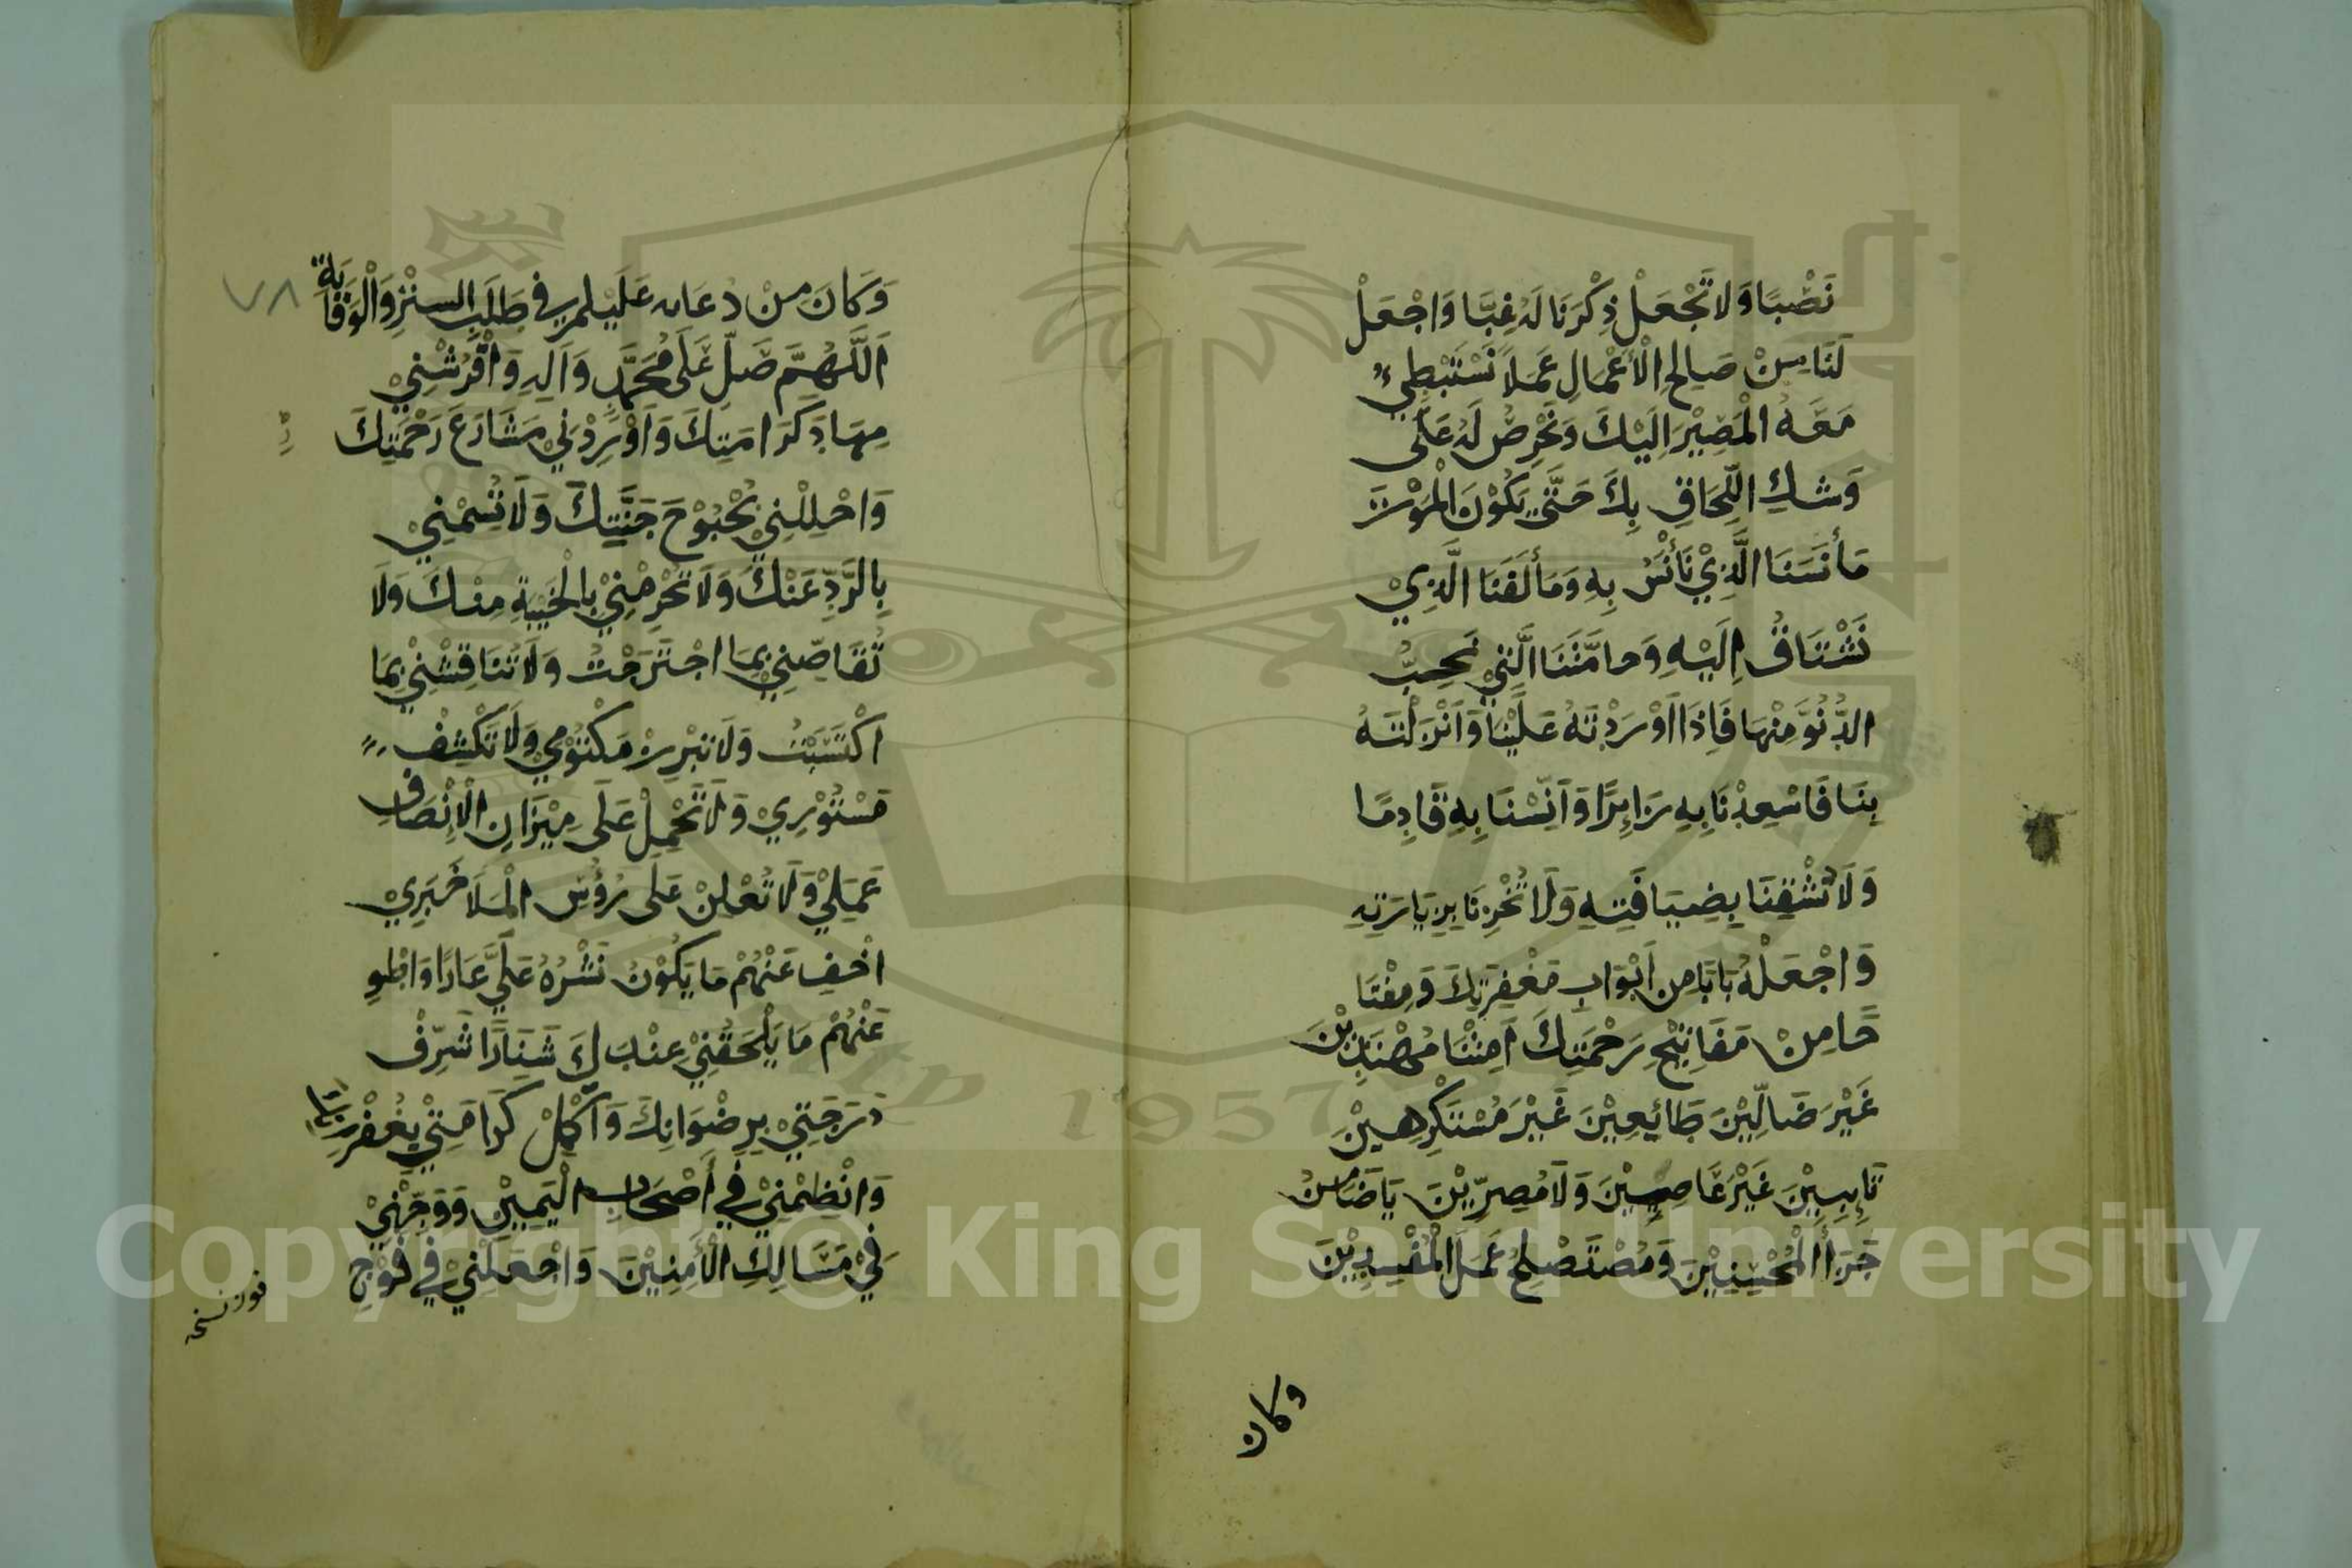 نَصْبًا وَلَا تَجْعَلْ ذِكْرَنَا لَهُ غِبًّا وَاجْعَلْ
لَنَا مِنْ صَالِحِ الْأَعْمَالِ عَمَلًا نَسْتَبْطِئُ
مَعَهُ الْمَصِيْرَ اِلَيْكَ وَنَحْرِصُ لَهُ عَلَى
وَشَكِ اللِّحَاقِ بِكَ حَتَّى يَكُوْنَ الْمَوْتَ
مَأْنَسَنَا الَّذِيْ نَأْنَسُ بِهِ وَمَأْلَفَنَا الَّذِيْ
نَشْتَاقُ اِلَيْهِ وَحَامَّتَنَا الَّتِيْ نُحِبُّ
الدُّنُوَّ مِنْهَا فَاِذَا اَوْرَدْتَهُ عَلَيْنَا وَاَنْزَلْتَهُ
بِنَا فَاسْعِدْنَا بِهِ زَائِرًا وَاٰنِسْنَا بِهِ قَادِمًا
وَلَا تُشْقِنَا بِضِيَافَتِهِ وَلَا تُخْزِنَا بِزِيَارَتِهِ
وَاجْعَلْهُ بَابًا مِن اَبْوَابِ مَغْفِرَتِكَ وَمِفْتَا
حًا مِنْ مَفَاتِيْحِ رَحْمَتِكَ اَمِتْنَا مُهْتَدِيْنَ
غَيْرَ ضَالِّيْنَ طَائِعِيْنَ غَيْرَ مُسْتَكْرِهِيْنَ
تَائِبِيْنَ غَيْرَ عَاصِيْنَ وَلَا مُصِرِّيْنَ يَا ضَامِنُ
جَزَاءِ الْمُحْسِنِيْنَ وَمُصْتَصْلِحُ عَمَلِ الْمُفْسِدِيْنَ
وكان
٧٨
وَكَانَ مِنْ دُعَائه عَلَيْهِ فِي طَلَبِ السِتْرِ وَالْوَقَايَةِ
اَللَّهُمَّ صَلِّ عَلَى مُحَمَّدٍ وَاٰلِهِ وَاَفْرِشْنِيْ
مِهَادَ كَرَامَتِكَ وَاَوْرِدْنِيْ مَشَارِعَ رَحْمَتِكَ
وَاحْلِلْنِيْ بُحْبُوْحَ جَنَّتِكَ وَلَا تَسُمْنِيْ
بِالرَّدِّ عَنْكَ وَلَا تَحْرِمْنِيْ بِالْخَيْبَةِ مِنْكَ وَلَا
تُقَاصِّنِيْ بِمَا اجْتَرَحْتُ وَلَا تُنَاقِشْنِيْ بِمَا
اكْتَسَبْتُ وَلَا تُبْرِزْ مَكْتُوْمِيْ وَلَا تَكْشِفْ
مَسْتُوْرِيْ وَلَا تَحْمِلْ عَلَى مِيْزَانِ الْاِنْصَافِ
عَمَلِيْ وَلَا تُعْلِنْ عَلَى رُؤُسِ الْمَلَا خَبَرِيْ
اخْفِ عَنْهُمْ مَا يَكُوْنُ نَشْرُهُ عَلَيَّ عَارًا وَاطْوِ
عَنْهُمْ مَا يَلْحَقُنِيْ عِنْدَكَ شَنَارًا شَرِّفْ
دَرَجَتِيْ بِرِضْوَانِكَ وَاَكْمِلْ كَرَامَتِيْ بِغُفْرَانِكَ
وَانْظِمْنِيْ فِي أَصْحَابِ الْيَمِيْنِ وَوَجِّهْنِيْ
فِيْ مَسَالِكِ الْاٰمِنِيْنَ وَاجْعَلْنِيْ فِي فَوْجِ
فوز نسخه
Copyright © King Saud University
1957